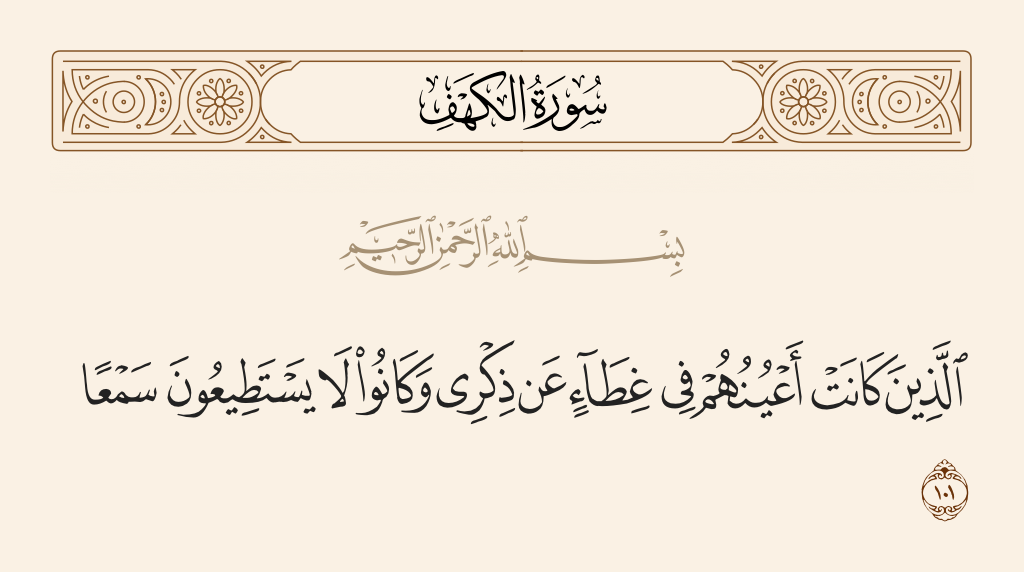 سُورَةُ الكَهْفِ
بِسْمِ ٱللَّهِ ٱلرَّحْمَٰنِ ٱلرَّحِيمِ
ٱلَّذِينَ كَانَتْ أَعْيُنُهُمْ فِى غِطَآءٍ عَن ذِكْرِى وَكَانُوا۟ لَا يَسْتَطِيعُونَ سَمْعًا
١٠١